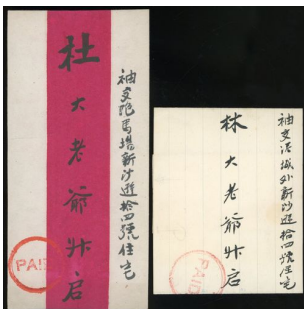 袖交跑馬場新沙遜拾四號住宅
杜大老爺升启
PAID
袖交港城外新沙遜拾四號住宅
林大老爺升启
PAID